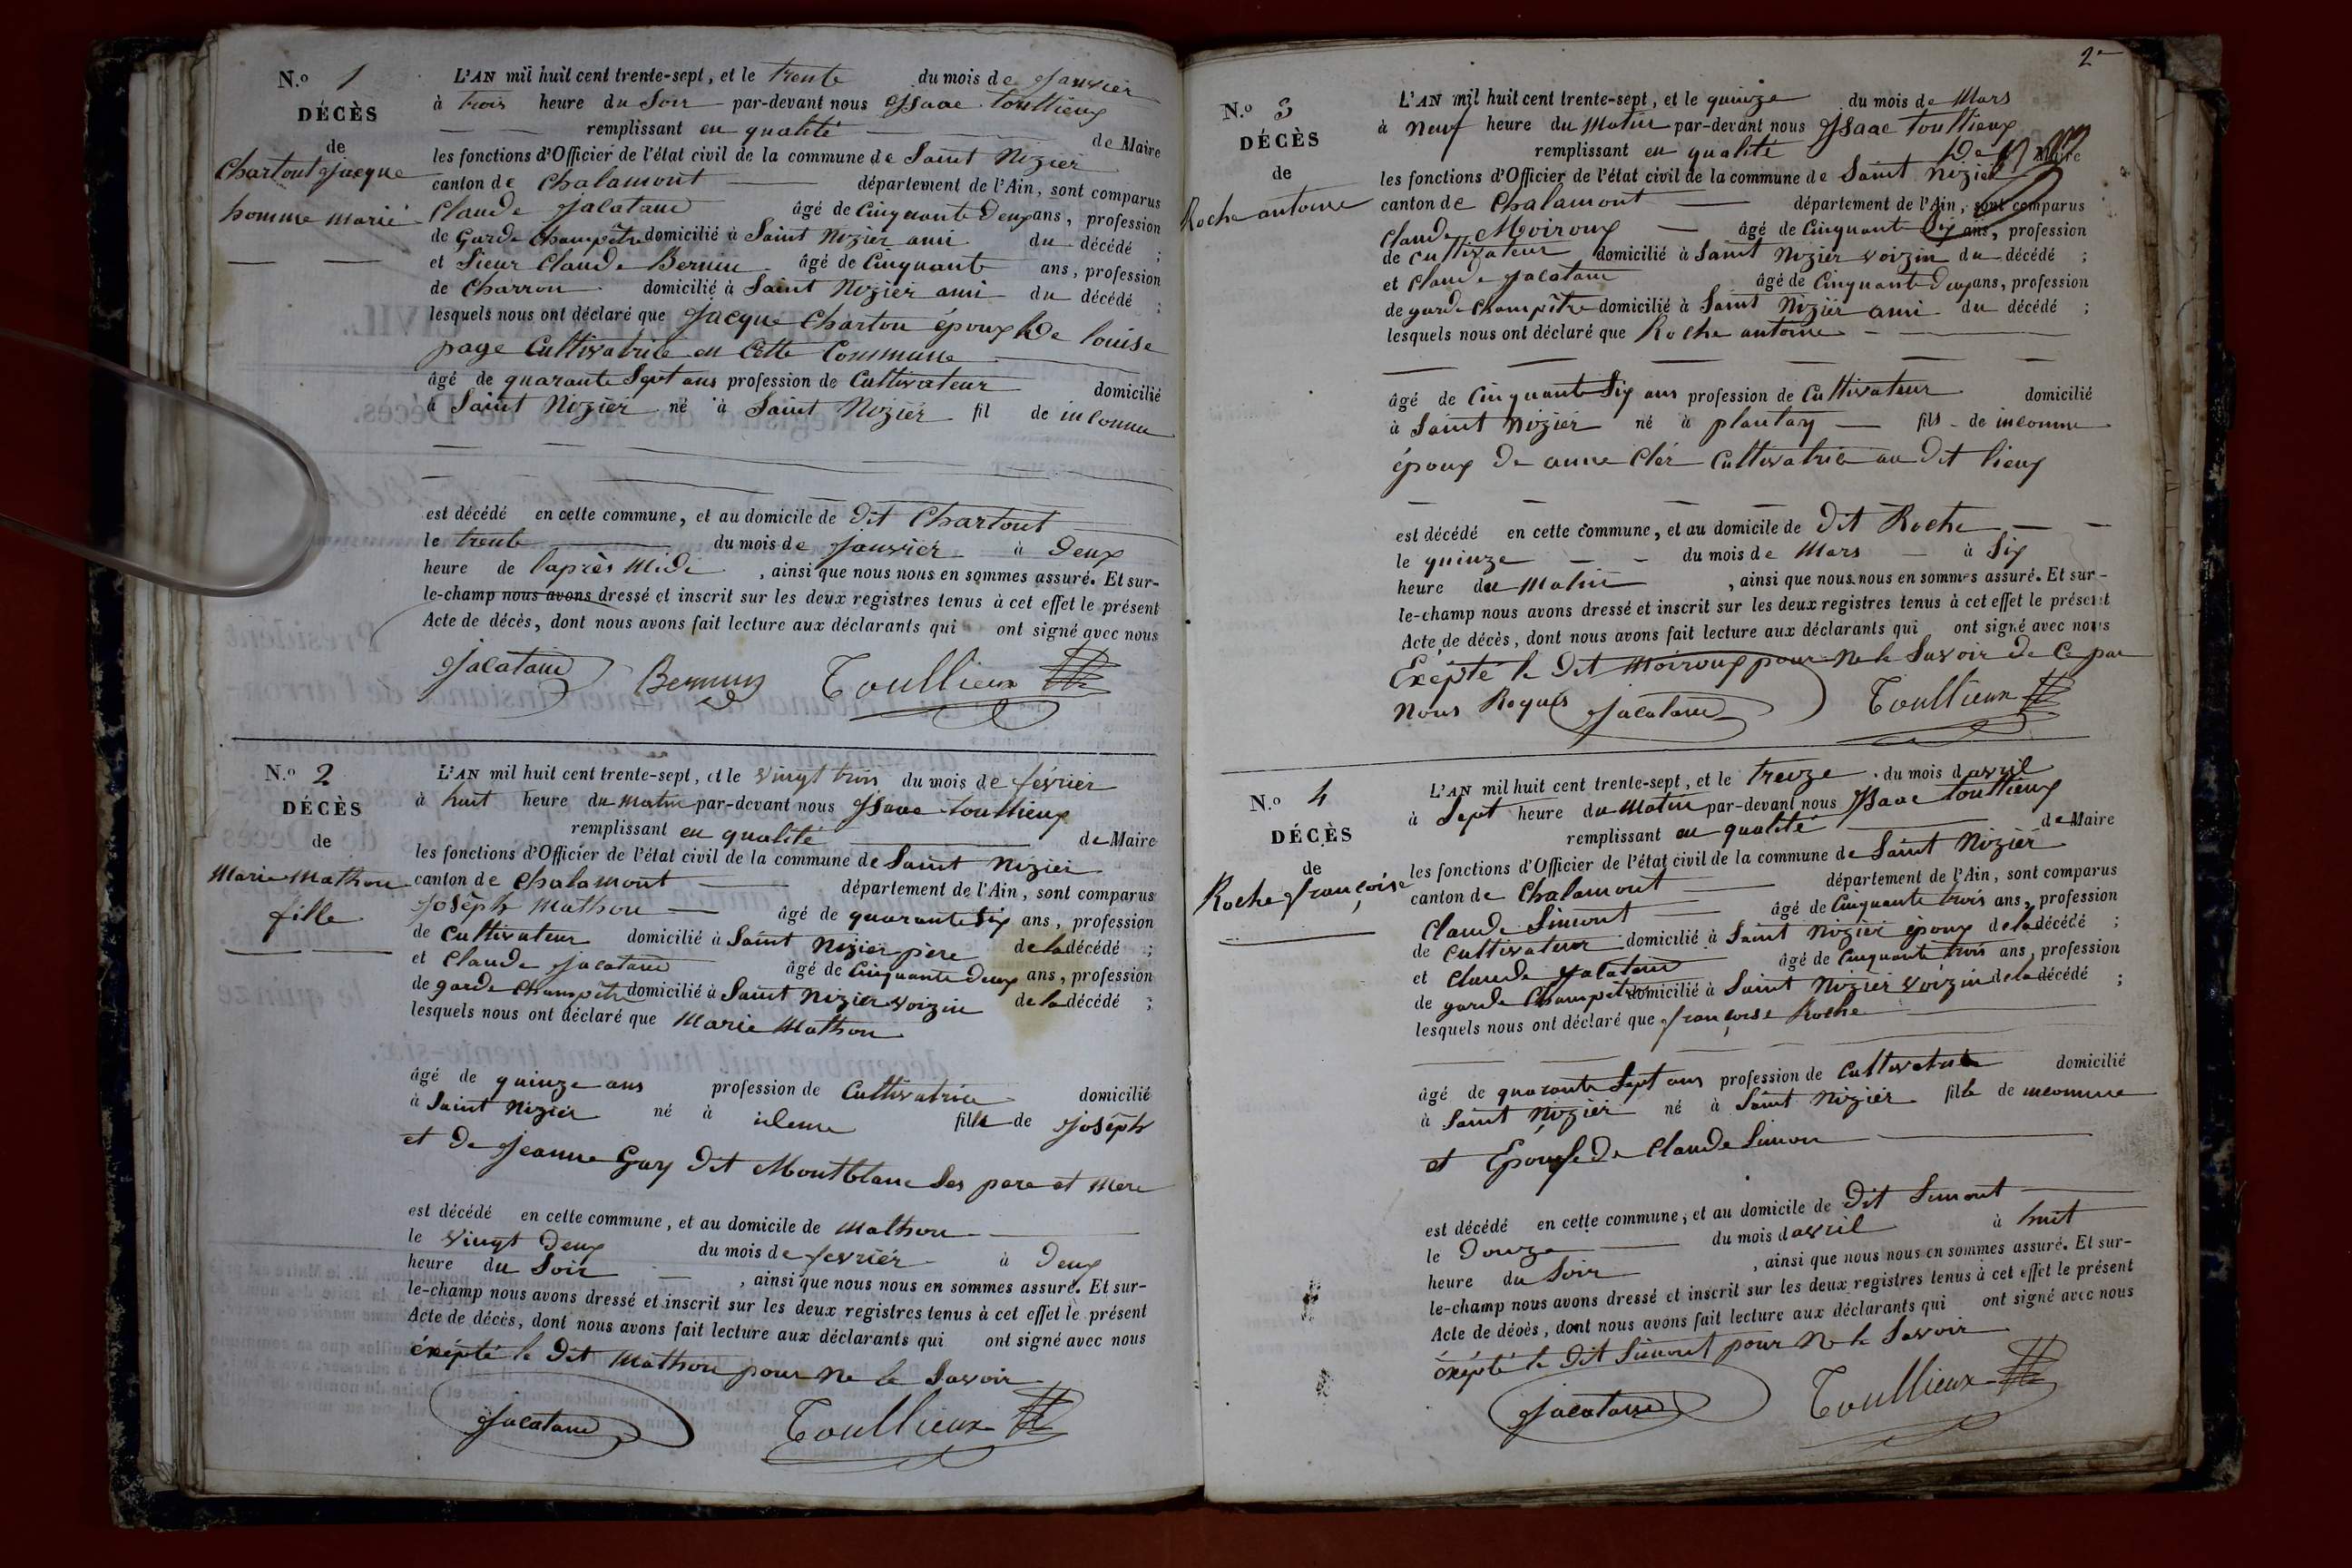 N.o 1
DÉCÈS
de
Chartout Jacque
homme marié
L'AN mil huit cent trente-sept, et le trente du mois de Janvier
à trois heure du Soir par-devant nous Isaac toullieux
remplissant en qualité de Maire
les fonctions d'Officier de l'état civil de la commune de Saint Nizier
canton de Chalamont département de l'Ain, sont comparus
Claude Jacataud âgé de Cinquante deux ans, profession
de Garde Champêtre domicilié à Saint Nizier ami du décédé ;
et Sieur Claude Bernin âgé de Cinquant ans, profession
de Charron domicilié à Saint Nizier ami du décédé ;
lesquels nous ont déclaré que Jacque Charton époux De louise
page Cultivatrice en Cette Commune
âgé de quarante Sept ans profession de Cultivateur domicilié
à Saint Nizier né à Saint Nizier fil de inConnu
est décédé en cette commune, et au domicile de Dit Chartout
le trente du mois de Janvier à Deux
heure de l'après Midi , ainsi que nous nous en sommes assuré. Et sur-
le-champ nous avons dressé et inscrit sur les deux registres tenus à cet effet le présent
Acte de décès, dont nous avons fait lecture aux déclarants qui ont signé avec nous
Jacataud Toullieux
N.o 2
DÉCÈS
de
Marie Mathon
fille
L'AN mil huit cent trente-sept, et le vingt trois du mois de février
à huit heure du matin par-devant nous Isaac toullieux
remplissant en qualité de Maire
les fonctions d'Officier de l'état civil de la commune de Saint Nizier
canton de Chalamont département de l'Ain, sont comparus
Joséph Mathon âgé de quarante Six ans, profession
de Cultivateur domicilié à Saint Nizier père de la décédé ;
et Claude Jacataud âgé de Cinquante deux ans, profession
de garde Champêtre domicilié à Saint Nizier voizin de la décédé ;
lesquels nous ont déclaré que Marie Mathon
âgé de quinze ans profession de Cultivatrice domicilié
à Saint Nizier né à idem fille de Joséph
et De Jeanne Guy Dit Montblanc Ses pere et Mere
est décédé en cette commune, et au domicile de Mathon
le vingt Deux du mois de fevriér à Deux
heure du Soir , ainsi que nous nous en sommes assuré. Et sur-
le-champ nous avons dressé et inscrit sur les deux registres tenus à cet effet le présent
Acte de décès, dont nous avons fait lecture aux déclarants qui ont signé avec nous
éxépté le Dit Mathon pour Ne le Savoir
Jacataud Toullieux
2
N.o 3
DÉCÈS
de
Roche antoine
L'AN mil huit cent trente-sept, et le quinze du mois de Mars
à Neuf heure du Matin par-devant nous Isaac toullieux
remplissant en qualité De Maire
les fonctions d'Officier de l'état civil de la commune de Saint Nizier
canton de Chalamont département de l'Ain, sont comparus
Claude Moiroux âgé de Cinquant Six ans, profession
de Cultivateur domicilié à Saint Nizier voizin du décédé ;
et Claude Jacataud âgé de Cinquante Deux ans, profession
de garde Champêtre domicilié à Saint Nizier ami du décédé ;
lesquels nous ont déclaré que Roche antoine
âgé de Cinquante Six ans profession de Cultivateur domicilié
à Saint Nizier né à plantay fils de inconnu
époux De anne Clér Cultivatrice au Dit lieux
est décédé en cette commune, et au domicile de Dit Roche
le quinze du mois de Mars à Six
heure du Matin , ainsi que nous nous en sommes assuré. Et sur-
le-champ nous avons dressé et inscrit sur les deux registres tenus à cet effet le présent
Acte de décès, dont nous avons fait lecture aux déclarants qui ont signé avec nous
Exépté le Dit Moiroux pour Ne le Savoir De Ce par
Nous Requis Jacataud Toullieux
N.o 4
DÉCÈS
de
Roche françoise
L'AN mil huit cent trente-sept, et le treize du mois d avril
à Sept heure du Matin par-devant nous Isaac toullieux
remplissant en qualité de Maire
les fonctions d'Officier de l'état civil de la commune de Saint Nizier
canton de Chalamont département de l'Ain, sont comparus
Claude Simont âgé de Cinquante trois ans, profession
de Cultivateur domicilié à Saint Nizier époux de la décédé ;
et Claude Jacataud âgé de Cinquante trois ans, profession
de garde Champetre domicilié à Saint Nizier voizin de la décédé ;
lesquels nous ont déclaré que françoise Roche
âgé de quarante Sept ans profession de Cultivatrice domicilié
à Saint Nizier né à Saint Nizier fille de inconnue
et Epouse De Claude Simon
est décédé en cette commune, et au domicile de Dit Simont
le Douze du mois d avril à huit
heure du Soir , ainsi que nous nous en sommes assuré. Et sur-
le-champ nous avons dressé et inscrit sur les deux registres tenus à cet effet le présent
Acte de décès, dont nous avons fait lecture aux déclarants qui ont signé avec nous
éxépté le Dit Simont pour Ne le Savoir
Jacataud Toullieux